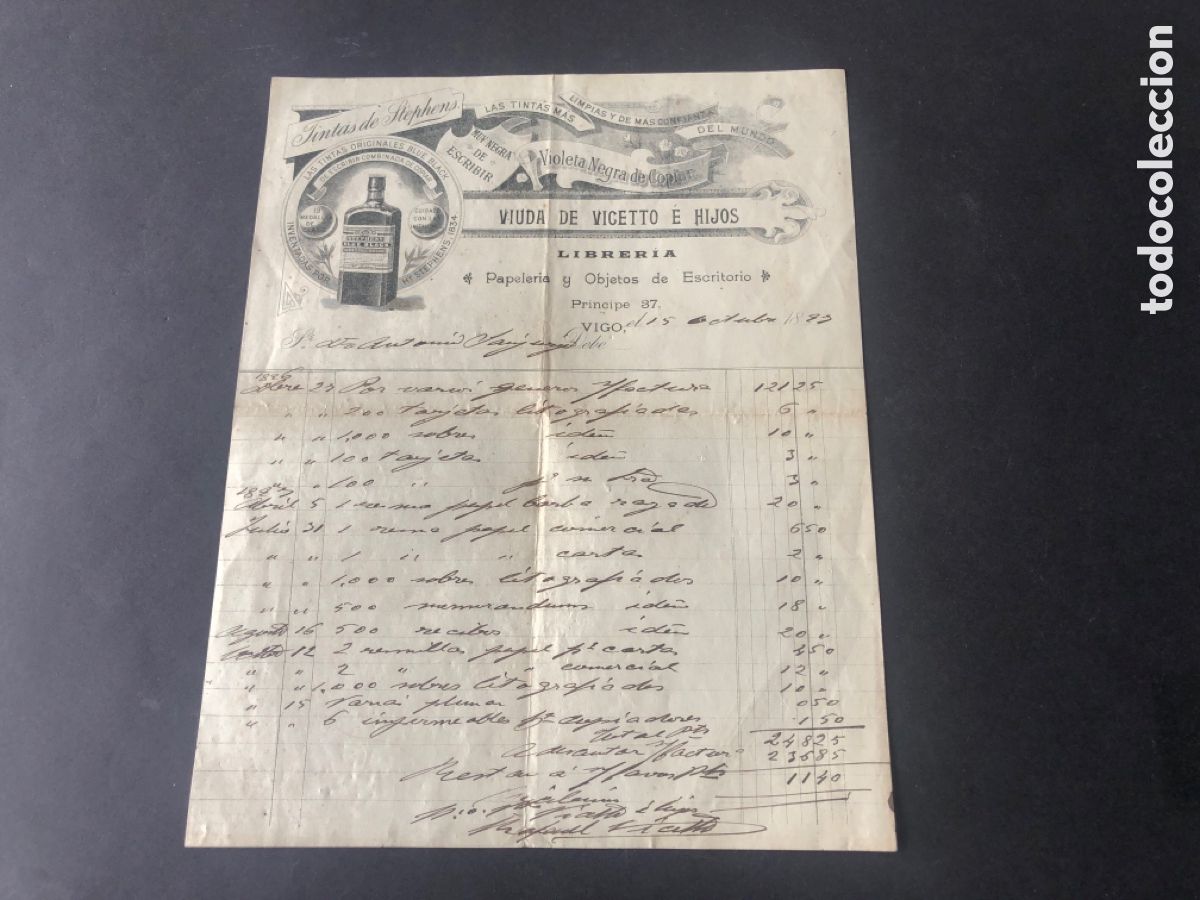 Tintas de Stephens.
LAS TINTAS MAS LIMPIAS Y DE MAS CONFIANZA DEL MUNDO
MUY NEGRA DE ESCRIBIR
Violeta Negra de Copiar
LAS TINTAS ORIGINALES BLUE BLACK
DE ESCRIBIR COMBINADA DE COPIAR
INVENTADAS POR Hy STEPHENS, 1834
STEPHENS
BLUE BLACK
VIUDA DE VICETTO É HIJOS
LIBRERÍA
Papeleria y Objetos de Escritorio
Principe 37.
VIGO, el 15 Octubre
Sr. Dn Antonio Sanjurjo Debe
27 Por varios generos s/factura 121 25
" " 200 tarjetas litografiadas 6 "
" " 1,000 sobres idem 10 "
" " 100 tarjetas idem 3 "
" " 100 " 3 "
Abril 5 1 resma papel barba rayado 20 "
Julio 31 1 resma papel comercial 6 50
" " 1 " " cartas 2 "
" " 1,000 sobres litografiados 10 "
" " 500 memorandums idem 18 "
Agosto 16 500 recibos idem 20 "
12 2 resmillas papel pa cartas 50
" " 2 " " comercial 12 "
" " 1,000 sobres litografiados 10 "
" 15 Varias plumas 0 50
" " 6 impermeables pa copiadores 1 50
Total Pts 248 25
A descontar s/factura 236 85
Restan á n/favor Pts 11 40
Vicetto é hijos
Rafael Vicetto
todocoleccion